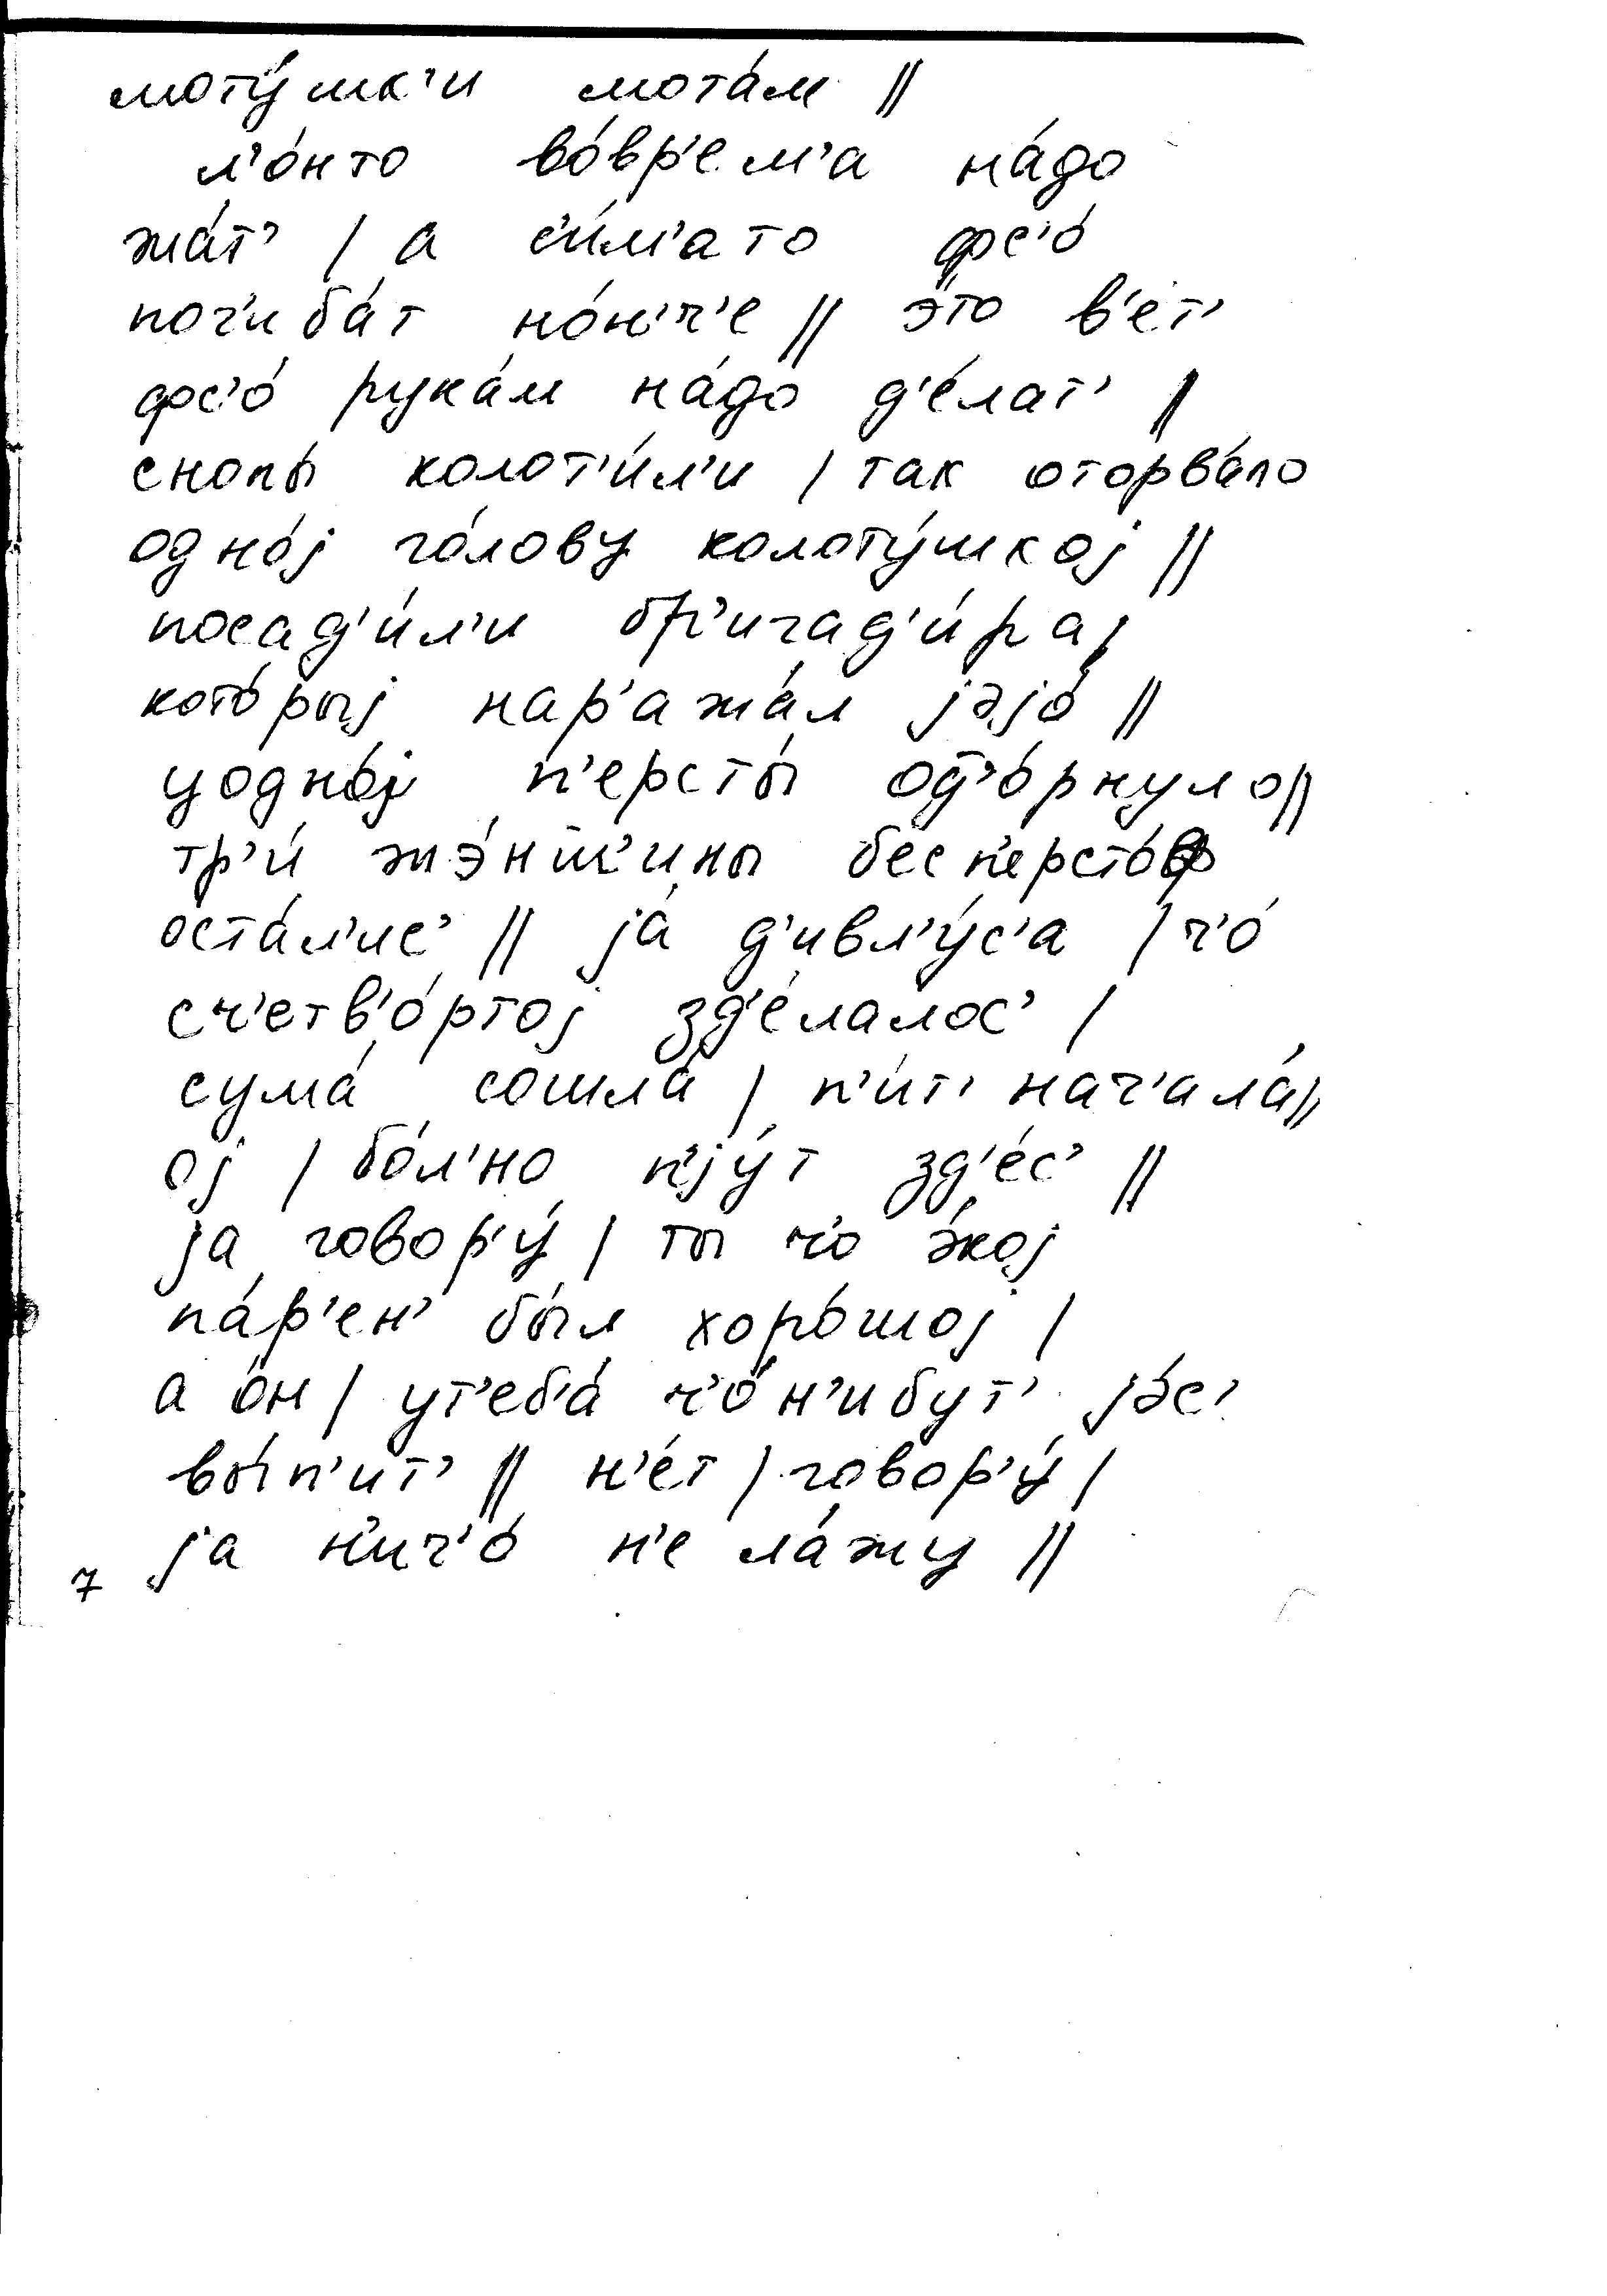 моту́шк'и мота́м ||
л'о́нто во́вр'ем'а на́до
жа́т' | а с'и́м'ато фс'о́
пог'иба́т но́н'ч'е || э́то в'е́т'
фс'о́ рука́м на́до д'е́лат' ||
снопы́ колот'и́л'и | так оторва́ло
одно́j го́лову колоту́шкоj ||
посад'и́л'и бр'игад'и́ра |
кото́рыj нар'ажа́л jэjо́ ||
уодно́j п'ерсты́ од'о́рнуло ||
тр'и́ жэ́нш'ины бесп'ерсто́ф
оста́л'ис' || jа́ д'ивл'у́с'а | ч'о́
сч'етв'о́ртоj зд'е́лалос' |
сума́ сошла́ | п'и́т' нач'ала́ ||
оj | бо́л'но п'jу́т зд'е́с' ||
jа говор'у́ | ты ч'о э́коj
па́р'ен' бы́л хоро́шоj |
а о́н | ут'еб'а́ ч'о́н'ибут' jэ́с'
вы́п'ит' || н'е́т | говор'у́ |
jа н'ич'о́ н'е ла́жу ||
7